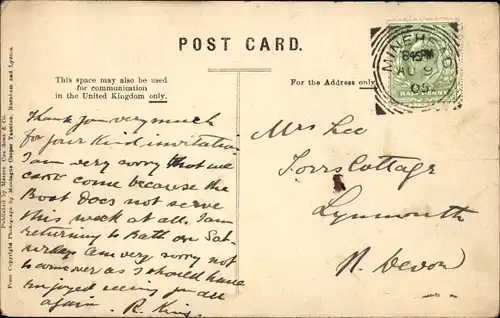 POST CARD.
This space may also be used
for communication
in the United Kingdom only.
For the Address only
MINEHEAD
845PM
AU 9
05
HALFPENNY
Thank you very much
for your kind invitation
I am very sorry that we
cant come because the
Boat does not serve
this week at all. I am
returning to Bath on Sat-
urday am very sorry not
to come over as I should have
enjoyed seeing you all
again. R. King.
Mrs Lee
Cottage
Lynmouth
N. Devon
Published by Messrs. Cox, Sons & Co.
From Copyright Photographs by Montague Cooper Taunton, Burnham and Lynton.